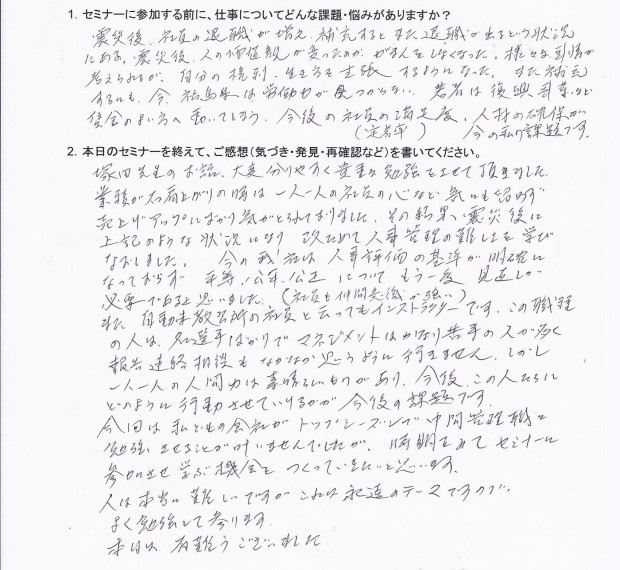 1. セミナーに参加する前に、仕事についてどんな課題・悩みがありますか？
震災後、社員の退職が増え、補充するとまた退職が出るという状況
にある。震災後、人の価値観が変ったのか、がまんをしなくなった。様々な事情が
考えられるが、自分の権利、生き方を主張するようになった。また補充
するにも、今、福島県は労働力が見つからない。若者は復興事業など
賃金のよい方へ動いてしまう。今後の社員の満足度、人材の確保が
(定着率) 今の私の課題です。
2. 本日のセミナーを終えて、ご感想（気づき・発見・再確認など）を書いてください。
塚田先生のお話、大変分りやすく貴重な勉強をさせて頂きました。
業績が右肩上がりの時は一人一人の社員の心など気にも留めず
売上げアップにばかり気がとられておりました。その結果、震災後に
上記のような状況になり 改ためて人事管理の難しさを学び
なおしました。 今の我社は人事評価の基準が明確に
なっておらず 平等、公平、公正 についてもう一度 見直しが
必要であると思いました。(社員も仲間意識が強い)
また 自動車教習所の社員と云ってもインストラクターです。この職種
の人は、名選手ばかりでマネジメントはかなり苦手の人が多く
報告連絡相談もなかなか思うように行きません。しかし
一人一人の人間力は素晴らしいものがあり、今後、この人たちに
どのように行動させていけるかが今後の課題です。
今回は私どもの会社がトップシーズンで中間管理職に
勉強させることが叶いませんでしたが、時期をみてセミナーに
参加させ 学ぶ機会を つくっていきたいと思います。
人は本当に難しいですが これは永遠のテーマですので、
よく勉強して参ります。
本日は 有難うございました